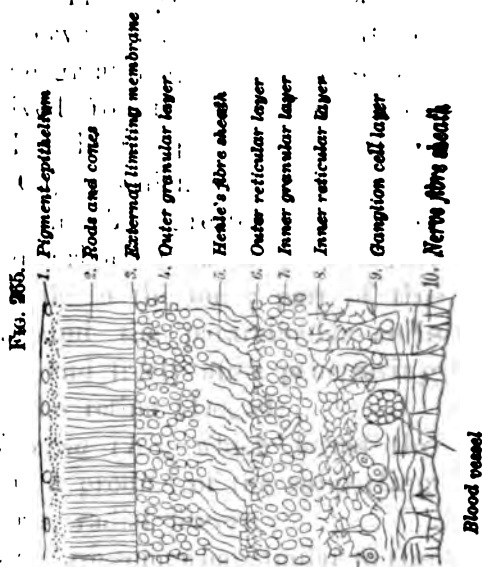 FIG. 265.
1. Pigment-epithelium
2. Rods and cones
3. External limiting membrane
4. Outer granular layer
5. Henle's fibre sheath
6. Outer reticular layer
7. Inner granular layer
8. Inner reticular layer
9. Ganglion cell layer
10. Nerve fibre sheath
Blood vessel